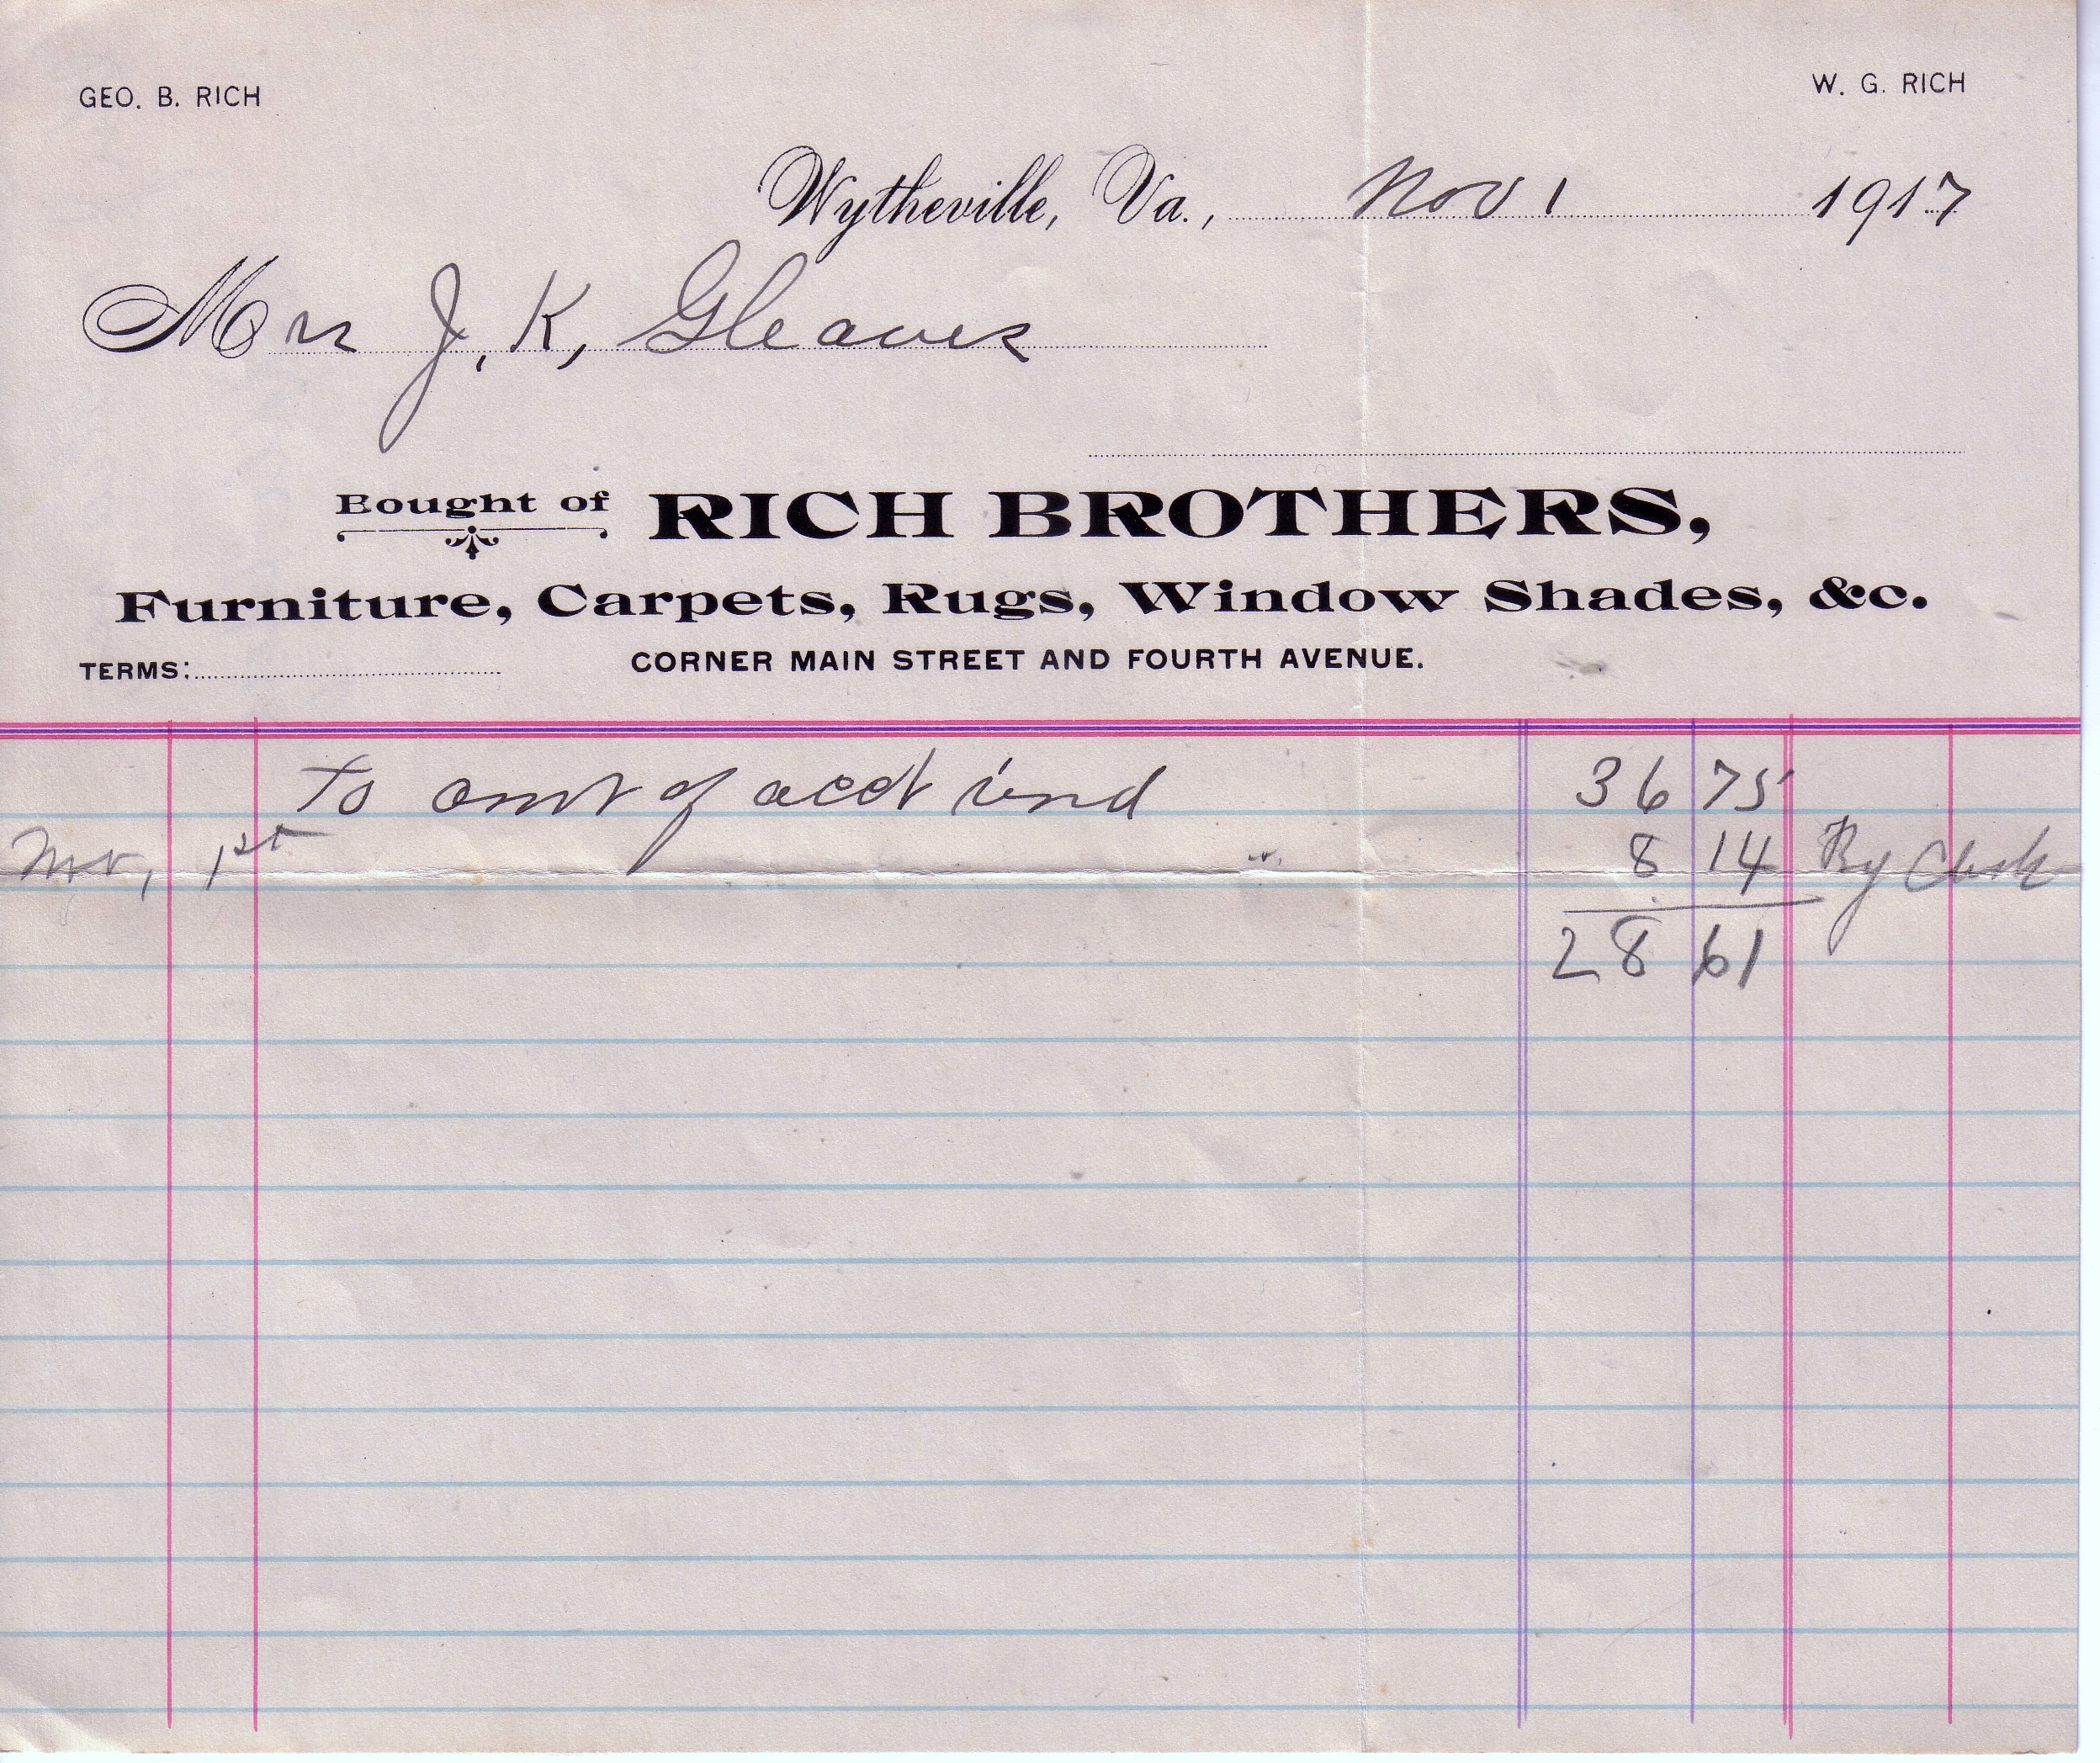 GEO. B. RICH
W. G. RICH
Wytheville, Va., Nov 1 1917
Mrs J. K. Gleaves
Bought of RICH BROTHERS,
Furniture, Carpets, Rugs, Window Shades, &c.
TERMS: CORNER MAIN STREET AND FOURTH AVENUE.
To amt of acct 36 75
1st 8 14 By Check
28 61